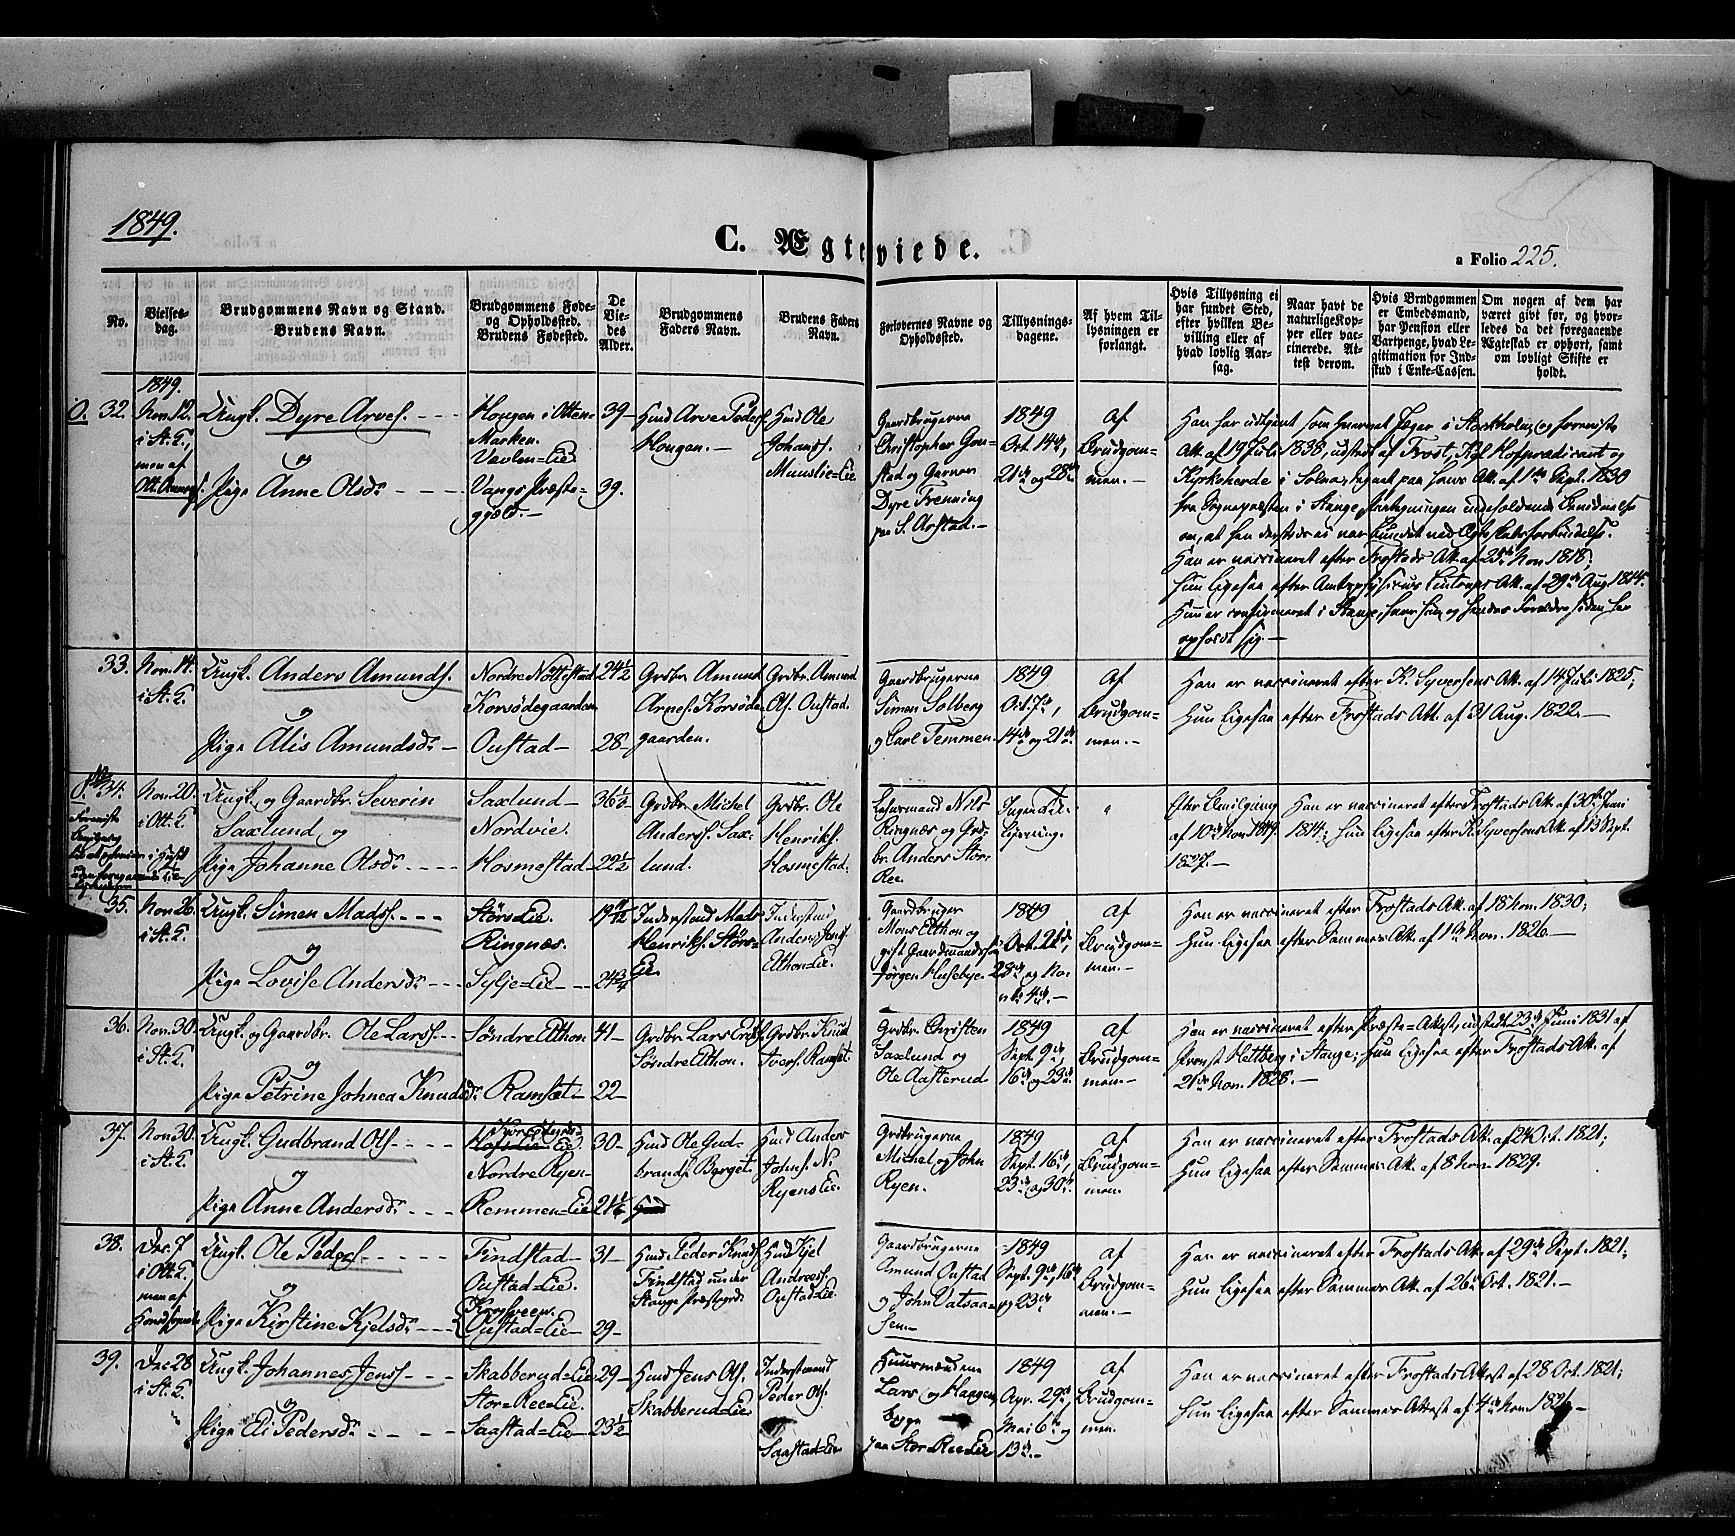 1849.
C. Ægteviede.
a Folio 225.
No.
Vielses-
dag.
Brudgommens Navn og Stand.
Brudens Navn.
Brudgommens Føde-
og Opholdssted.
Brudens Fødested.
De
Vie-
des
Alder.
Brudgommens
Faders Navn.
Brudens Faders
Navn.
Forlovernes Navne og
Opholdssted.
Tillysnings-
dagene.
Af hvem Til-
lysningen er
forlangt.
Hvis Tillysning ei
har fundet Sted,
efter hvilken Be-
villing eller af
hvad lovlig Aar-
sag.
Naar havt de
naturlige Kop-
per eller vac-
cinerede. At-
test derom.
Hvis Brudgommen
er Embedsmand,
har Pension eller
Vartpenge, hvad Le-
gitimation for Ind-
skud i Enke-Cassen.
Om nogen af dem har
været gift før, og hvor-
ledes da det foregaaende
Ægteskab er ophørt, samt
om lovligt Skifte er
holdt.
0. 32.
1849.
Nov. 12.
i St. K.,
men af
Ungk. Dyre Arves.
og
Pige Anne Olsdr
Hougen i Otten-
Marken.
Vævlen=Eie
Vangs Præste-
gjæld.
39
39.
Husmd Arve Peders.
Hougen.
Husmd Ole
Johanns.
Munslie=Eie
Gaardbrugerne
Christopher Gon-
stad og Garver
Dyre Frenning
paa S. Arstad.
1849
Oct. 14de,
21de og 28de
af
Brudgom-
men.
Han har udtjent som hvervet Jæger i Stockholm og foreviste
Att. af 19 Juli 1838, udstedt af Frost, Kgl. Hofprædicant og
Kyrkoherde i Solna, tegnet paa hans Att. af 1ste Sept. 1830
fra Sognepræsten i Stange,
om, at han dersteds ei var bunden ved Ægteskabsforbindelse.
Han er vaccineret efter Frostads Att. af 25de Nov. 1818;
Hun ligesaa efter Att. af 29de Aug. 1814.
Hun er confirmeret i Stange, hvor hun og hendes Forældre siden har
opholdt sig.
33.
Nov. 14.
i St. K.
Ungk. Anders Amunds.
og
Pige Alis Amundsdr
Nordre Nøttestad
Korsødegaarden
Oustad
24 1/2
28
Grdbr. Amund
Arnes. Korsøde-
gaarden.
Grdbr. Amund
Ols. Oustad.
Gaardbrugerne
Simen Solberg
og Carl Temmen.
1849
Oct. 7de,
14de og 21de.
af
Brudgom-
men.
Han er vaccineret efter K. Syversens Att. af 14 Juli 1825;
Hun ligesaa efter Frostads Att. af 31 Aug. 1822.
34.
Nov. 20.
i Ott. K.
Ungk. og Gaardbr. Severin
Saxlund og
Pige Johanne Olsdr
Saxlund
Nordvie.
Hosmestad
36 1/2
22 1/2
Grdbr. Michel
Anders. Sax-
lund.
Grdbr. Ole
Henriks.
Hosmestad.
Lehnsmand Nils
Ringnæs og Grd-
br. Anders Stor-
Ree.
Ingen Til-
lysning.
"
Efter Bevilgning
af 10de Nov. 1849.
Han er vaccineret efter Frostads Att. af 30te Juni
1814; Hun ligesaa efter K. Syversens Att. af 13 Sept.
1827.
35.
Nov. 26.
i St. K.
Ungk. Simen Mads.
og
Pige Lovise Andersdr
Størs=Eie.
Ringnæs.
Sylje=Eie
19 11/12
24 3/4
Inderstand Mads
Henriks. Størs-
Eie.
Inderstand
Anders Jens.
Elthon=Eie.
Gaardbruger
Mons Elthon og
gift Gaardmandssøn
Jørgen Husebye.
1849
Oct. 21de,
28de og No-
vbr. 4de.
af
Brudgom-
men.
Han er vaccineret efter Frostads Att. af 18 Nov. 1830;
Hun ligesaa efter Sommers Att. af 1ste Nov. 1826.
36.
Nov. 30.
i St. K.
Ungk. og Gaardbr. Ole Lars.
og
Pige Petrine Johnea Knudsdr
Søndre Elthon
Ramsæt
41
22
Grdbr. Lars Eriks.
Søndre Elthon.
Grdbr. Knud
Ivers. Ramset.
Grdbr. Christen
Saxlund og
Ole Aasterud
1849
Sept. 9de,
16de og 23de
af
Brudgom-
men.
Han er vaccineret efter Præste=Attest, udstedt 23de Juni 1831 af
Provst Heltberg i Stange; Hun ligesaa efter Frostads Att. af
21de Nov. 1828.
37.
Nov. 30.
i St. K.
Ungk. Gudbrand Ols.
og
Pige Anne Andersdr
Nordre Ryen
Remmen=Eie
30
21
Husmd Ole Gud-
brands. Berget.
Husmd Anders
Johns. N.
Ryens Eie.
Grdbrugerne
Michel og John
Ryen.
1849
Sept. 16de,
23de og 30te.
af
Brudgom-
men.
Han er vaccineret efter Frostads Att. af 24 Oct. 1821;
Hun ligesaa efter Sommers Att. af 8 Nov. 1829.
38.
Dec. 7
i Ott. K.
men af
Ungk. Ole Peders.
og
Pige Kirstine Kjelsdr
Findstad
Oustad=Eie.
Oustad=Eie
31
29
Husmd Peder Knuds.
Findstad under
Stange Præstegrd
Husmd Kjel
Andreas.
Oustad=Eie.
Gaardbrugerne
Amund Oustad
og John Vatsaa-
sen.
1849
Sept. 9de, 16de
og 23de
af
Brudgom-
men.
Han er vaccineret efter Frostads Att. af 29de Sept. 1821;
Hun ligesaa efter Sommers Att. af 26de Oct. 1821.
39.
Dec. 28
i St. K.
Ungk. Johannes Jens.
og
Pige Eli Pedersdr
Skabberud=Eie
Stor=Ree=Eie.
Saastad=Eie
29
23 1/2
Husmd Jens Ols.
Skabberud=Eie
Inderstmand
Peder Ols.
Saastad=Eie
Huusmændene
Lars og Haagen,
begge
paa Stor=Ree=Eie
1849
Apr. 29de,
Mai 6te og
13de.
af
Brudgom-
men.
Han er vaccineret efter Frostads Attest af 28 Oct. 1821;
Hun ligesaa efter Sommers Attest af 4de Nov. 1826.